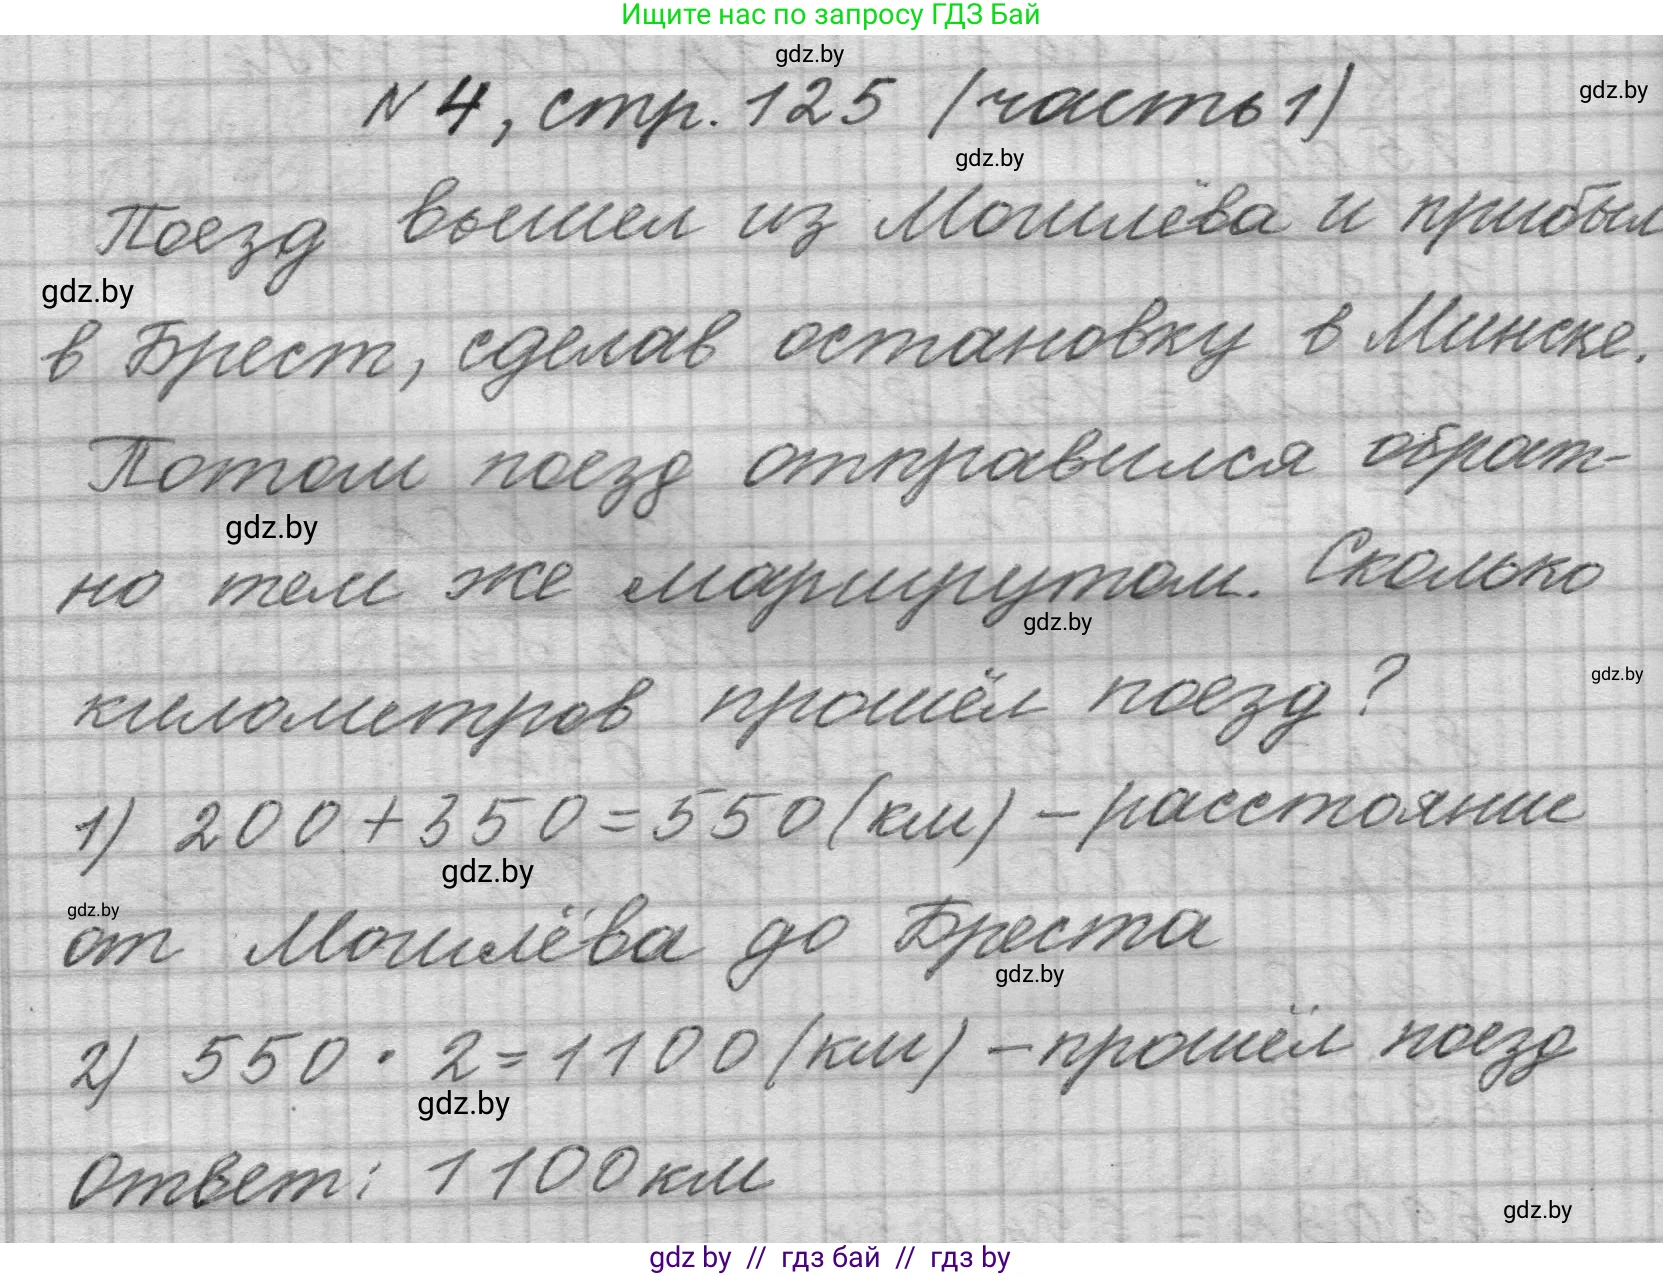 Ищите нас по запросу ГДЗ Бай
gdz.by
№ 4, стр. 125 (часть 1)
gdz.by
gdz.by
Поезд вышел из Могилёва и прибыл
gdz.by
в Брест, сделав остановку в Минске.
Потом поезд отправился обрат-
gdz.by
но тем же маршрутом. Сколько
gdz.by
километров прошёл поезд?
gdz.by
1) 200 + 350 = 550 (км) – расстояние
gdz.by
gdz.by
от Могилёва до Бреста
gdz.by
2) 550 · 2 = 1100 (км) – прошёл поезд
gdz.by
Ответ: 1100 км
gdz.by
gdz by // гдз бай // гдз by